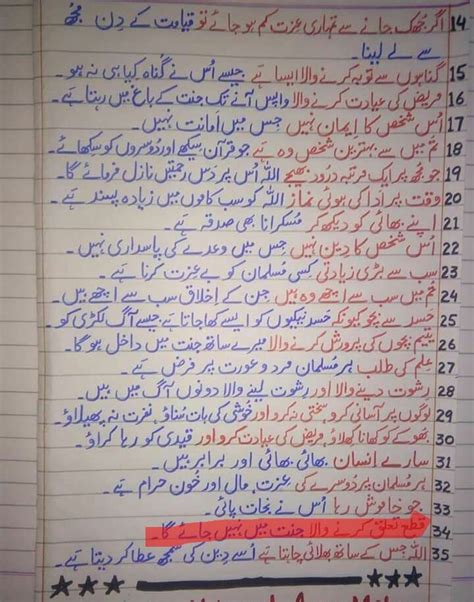 14 اگر جھک جانے سے تمہاری عزت کم ہو جائے تو قیامت کے دن مجھ
سے لے لینا۔
15 گناہوں سے توبہ کرنے والا ایسا ہے جیسے اُس نے گناہ کیا ہی نہ ہو۔
16 مریض کی عیادت کرنے والا واپس آنے تک جنت کے باغ میں رہتا ہے۔
17 اُس شخص کا ایمان نہیں جس میں امانت نہیں۔
18 تم میں سے بہترین شخص وہ ہے جو قرآن سیکھے اور دوسروں کو سکھائے۔
19 جو مجھ پر ایک مرتبہ درود بھیجے اللہ اُس پر دس رحمتیں نازل فرمائے گا۔
20 وقت پر ادا کی ہوئی نماز اللہ کو سب کاموں میں زیادہ پسند ہے۔
21 اپنے بھائی کو دیکھ کر مسکرانا بھی صدقہ ہے۔
22 اُس شخص کا دین نہیں جس میں وعدے کی پاسداری نہیں۔
23 سب سے بڑی زیادتی کسی مسلمان کو بے عزت کرنا ہے۔
24 تم میں سب سے اچھے وہ ہیں جن کے اخلاق سب سے اچھے ہیں۔
25 حسد سے بچو کیونکہ حسد نیکیوں کو ایسے کھا جاتا ہے جیسے آگ لکڑی کو۔
26 یتیم بچوں کی پرورش کرنے والا میرے ساتھ جنت میں داخل ہوگا۔
27 علم کی طلب ہر مسلمان مرد و عورت پر فرض ہے۔
28 رشوت دینے والا اور رشوت لینے والا دونوں آگ میں ہیں۔
29 لوگوں پر آسانی کرو، سختی نہ کرو اور خوشی کی بات سناؤ، نفرت نہ پھیلاؤ۔
30 بھوکے کو کھانا کھلاؤ، مریض کی عیادت کرو اور قیدی کو رہا کراؤ۔
31 سارے انسان بھائی بھائی اور برابر ہیں۔
32 ہر مسلمان پر دوسرے کی عزت، مال اور خون حرام ہے۔
33 جو خاموش رہا اُس نے نجات پائی۔
34 قطع تعلق کرنے والا جنت میں نہیں جائے گا۔
35 اللہ جس کے ساتھ بھلائی چاہتا ہے اُسے دین کی سمجھ عطا کر دیتا ہے۔